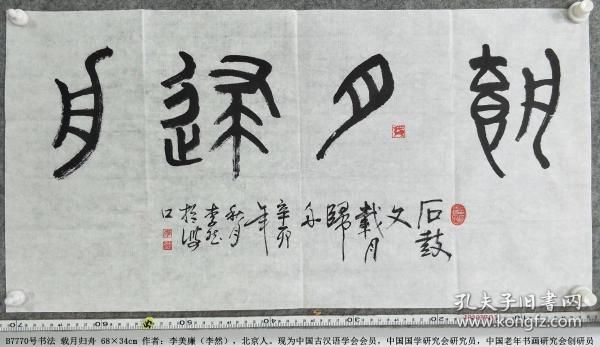 載月歸舟
石鼓
文
載月
歸
舟
辛卯
年
秋月
李然
孔夫子旧书网
book.kongfz.com
B7770号书法 载月归舟 68×34cm 作者：李美廉（李然），北京人。现为中国古汉语学会会员，中国国学研究会研究员，中国老年书画研究会创研员